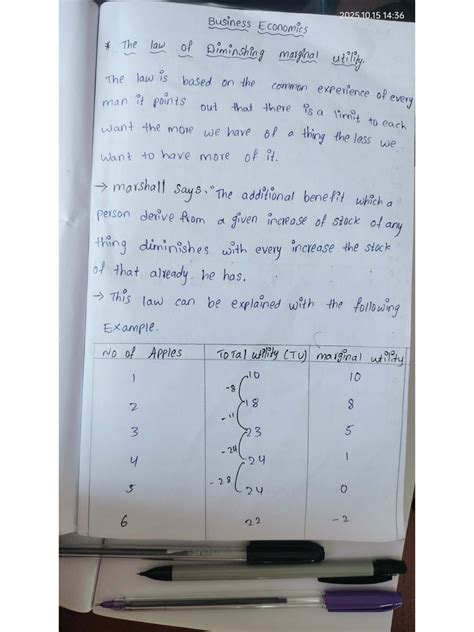 2025.10.15 14:36
Business Economics
* The law of Diminshing marginal utility.
The law is based on the common experience of every
man it points out that there is a limit to each
want the more we have of a thing the less we
want to have more of it.
→ marshall says. "The additional benefit which a
person derive from a given increase of stock of any
thing diminishes with every increase the stock
of that already he has.
→ This law can be explained with the following
Example.
No of Apples Total utility (TU) marginal utility
1 10 10
-8
2 18 8
-11
3 23 5
-24
4 24 1
-28
5 24 0
6 22 -2